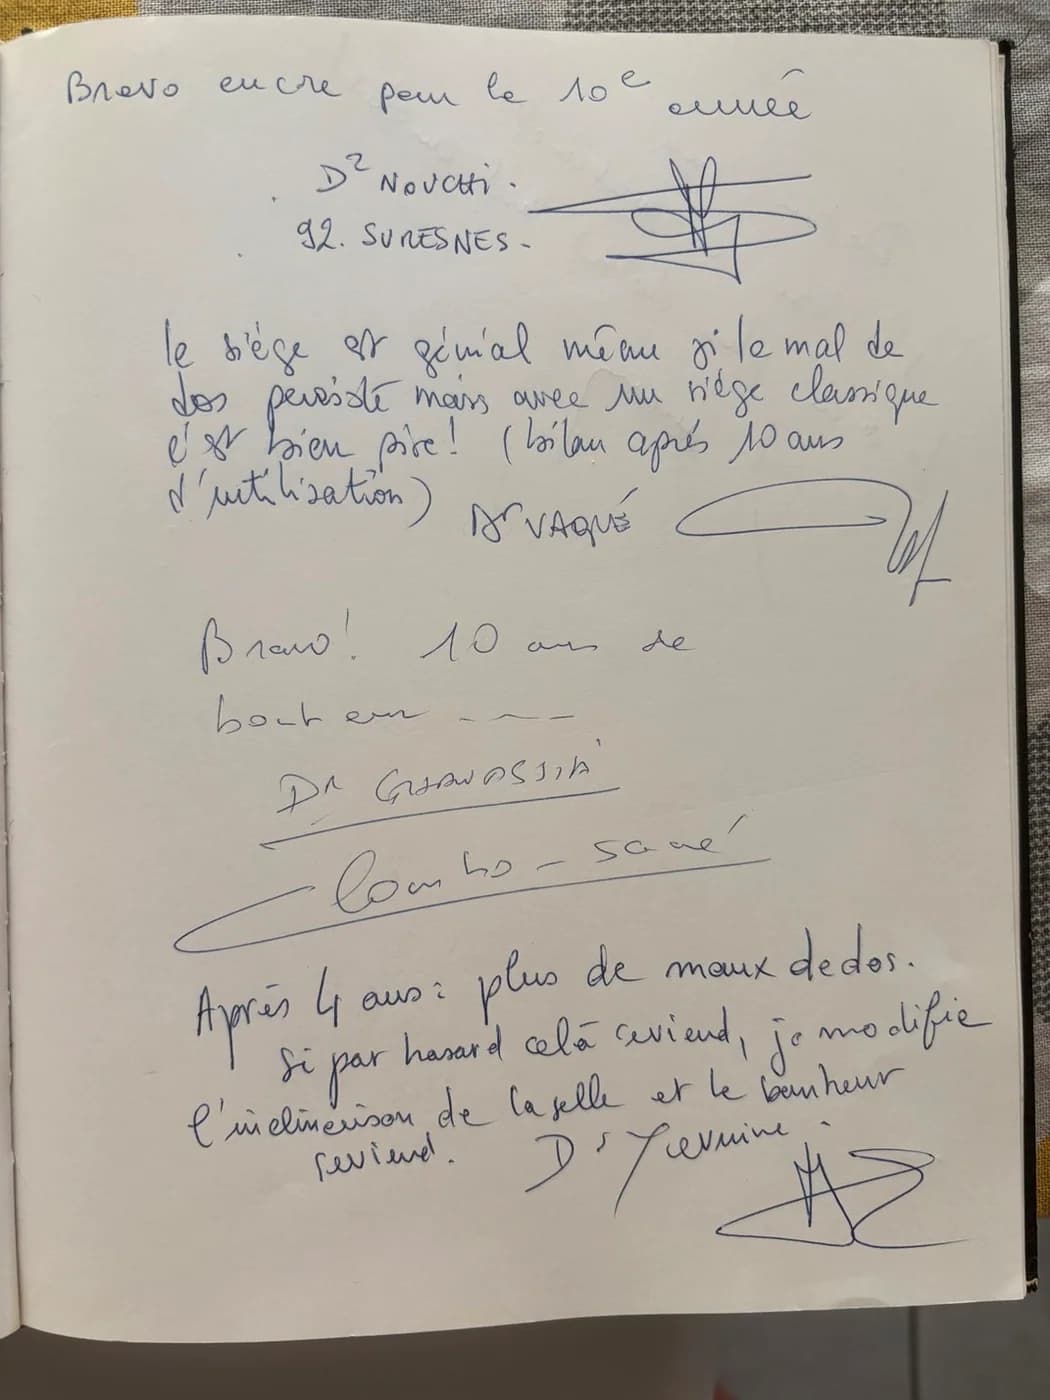 Bravo encore pour la 10e année
Dr NOUCHI.
92. SURESNES-
le siège est génial même si le mal de
dos persiste mais avec un siège classique
c'est bien pire! (bilan après 10 ans
d'utilisation)
Dr VAQUÉ
Bravo! 10 ans de
bonheur ----
Dr
Après 4 ans: plus de maux de dos.
Si par hasard celà reviend, je modifie
l'inclinaison de la selle et le bonheur
reviend.
Dr